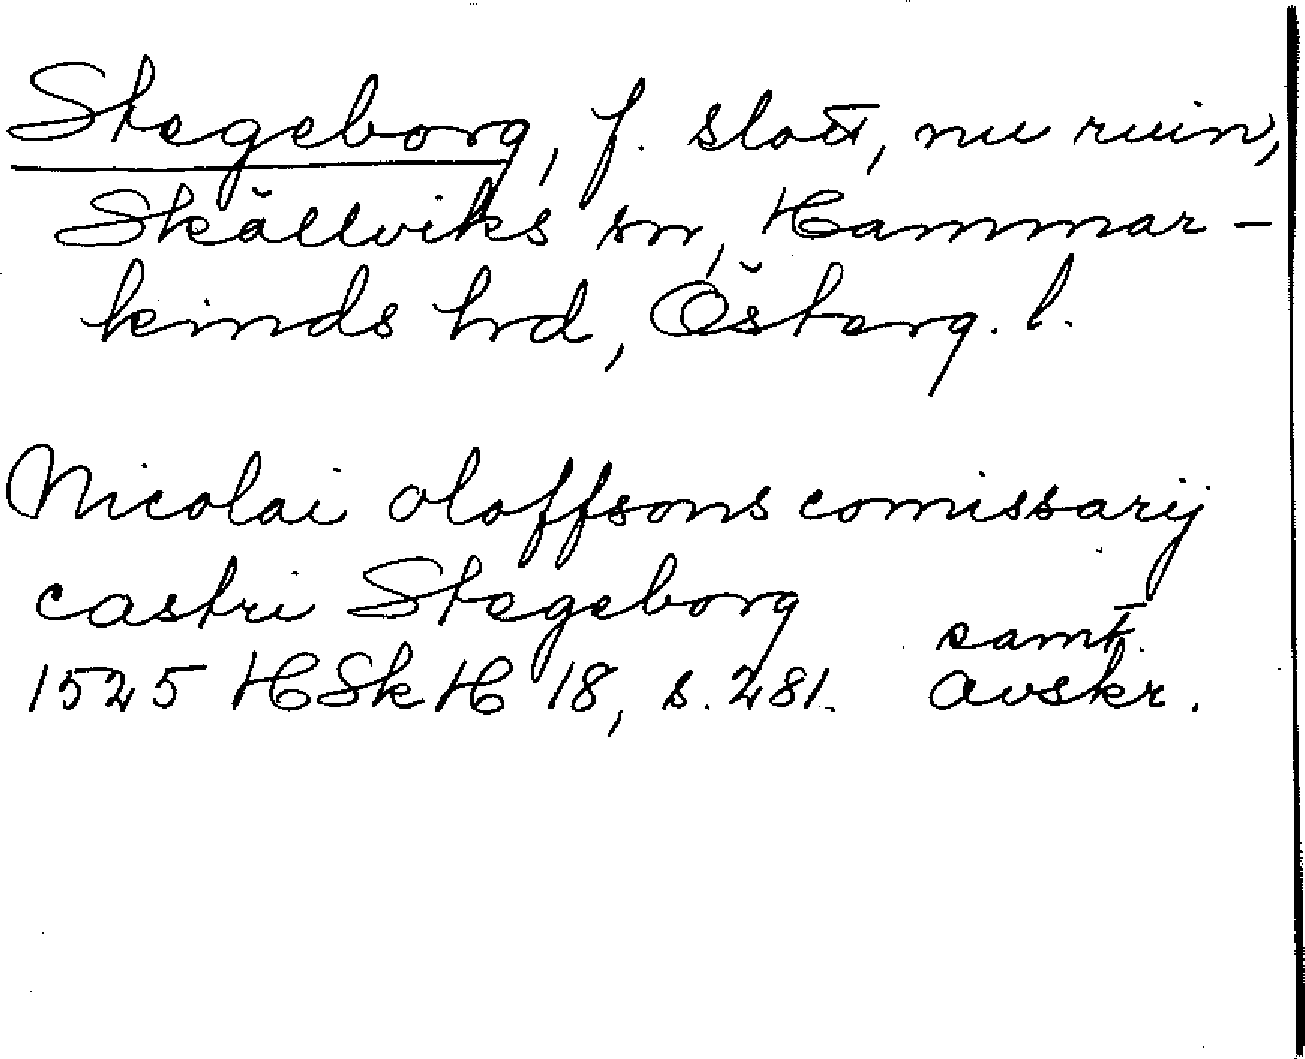 Stegeborg, f. slott, nu ruin,
Skällviks sn, Hammar-
kinds hrd, Österg. l.
Nicolai oloffsons comissarij
castri Stegeborg
samt.
1525 HSkH 18, s. 281. avskr.